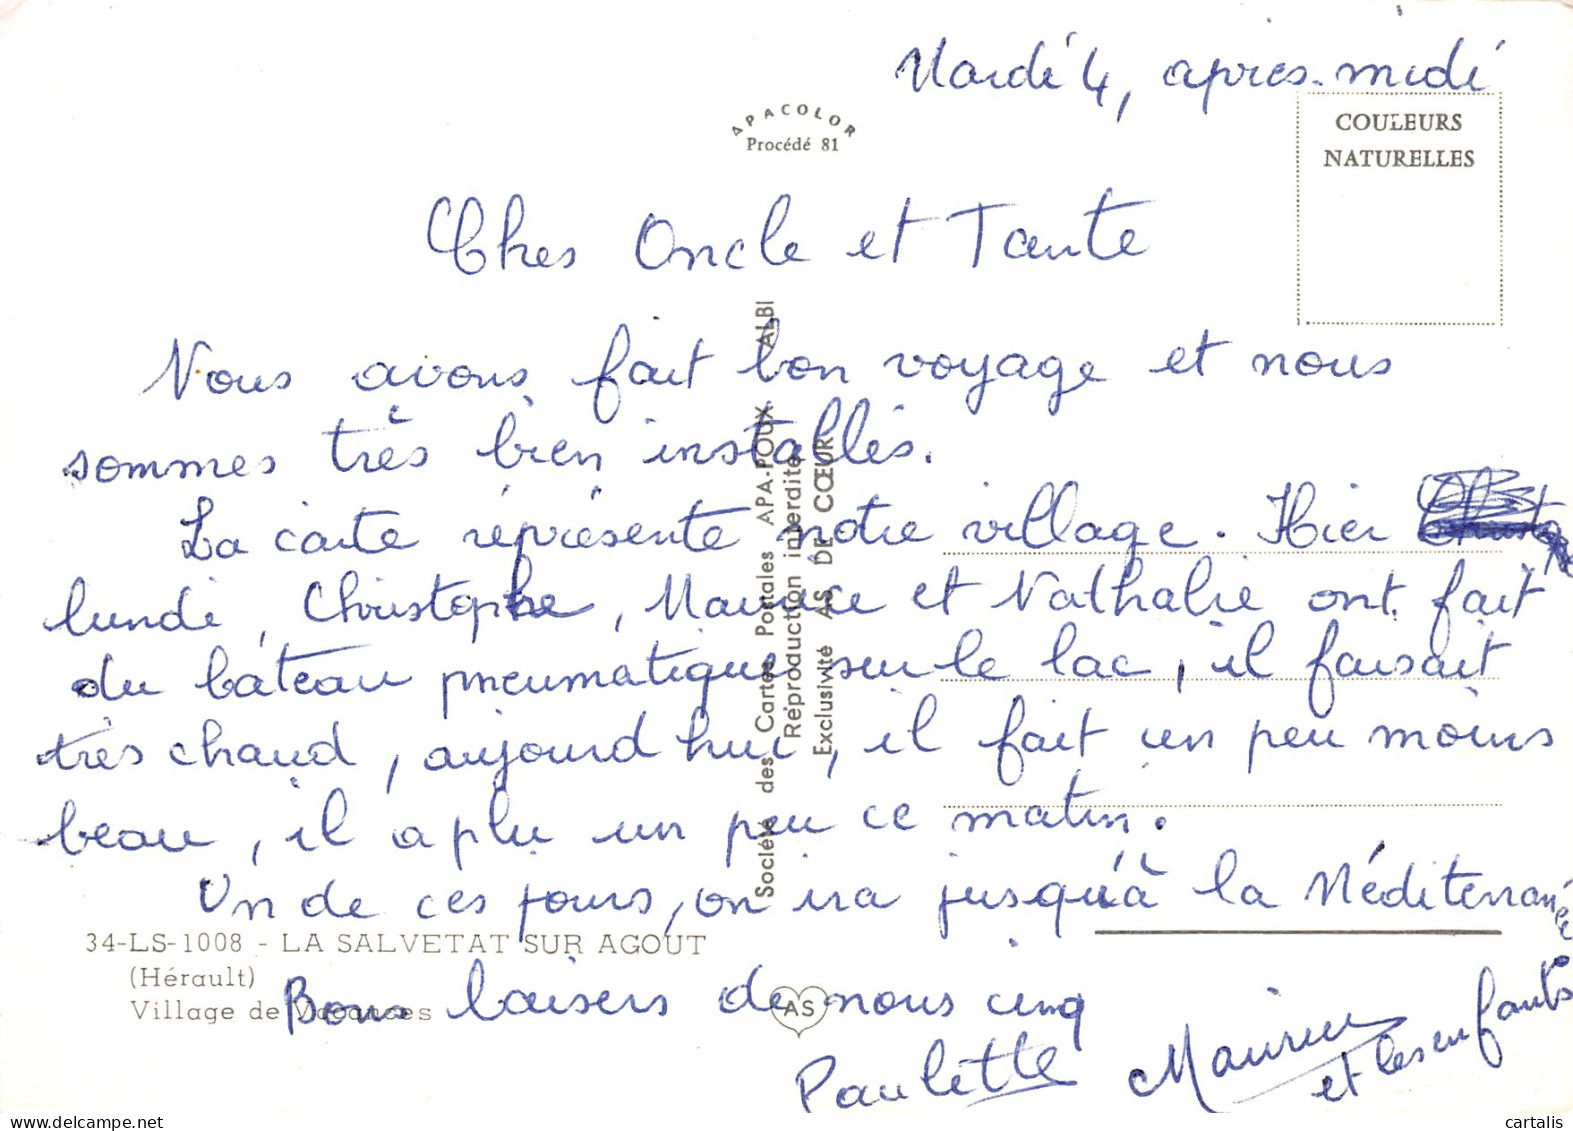 Mardi 4, après-midi
APACOLOR
Procédé 81
COULEURS
NATURELLES
Chers Oncle et Tante
Nous avons fait bon voyage et nous
sommes très bien installés.
La carte représente notre village. Hier
lundi, Christophe, Maurice et Nathalie ont fait
du bateau pneumatique sur le lac, il faisait
très chaud, aujourd'hui, il fait un peu moins
beau, il a plu un peu ce matin.
Un de ces jours, on ira jusqu'à la Méditerranée
Bons baisers de nous cinq
Paulette Maurice
et les enfants
Société des Cartes Postales APA-POUX ALBI
Reproduction interdite
Exclusivité AS DE CŒUR
34-LS-1008 - LA SALVETAT SUR AGOUT
(Hérault)
Village de Vacances
AS
cartalis